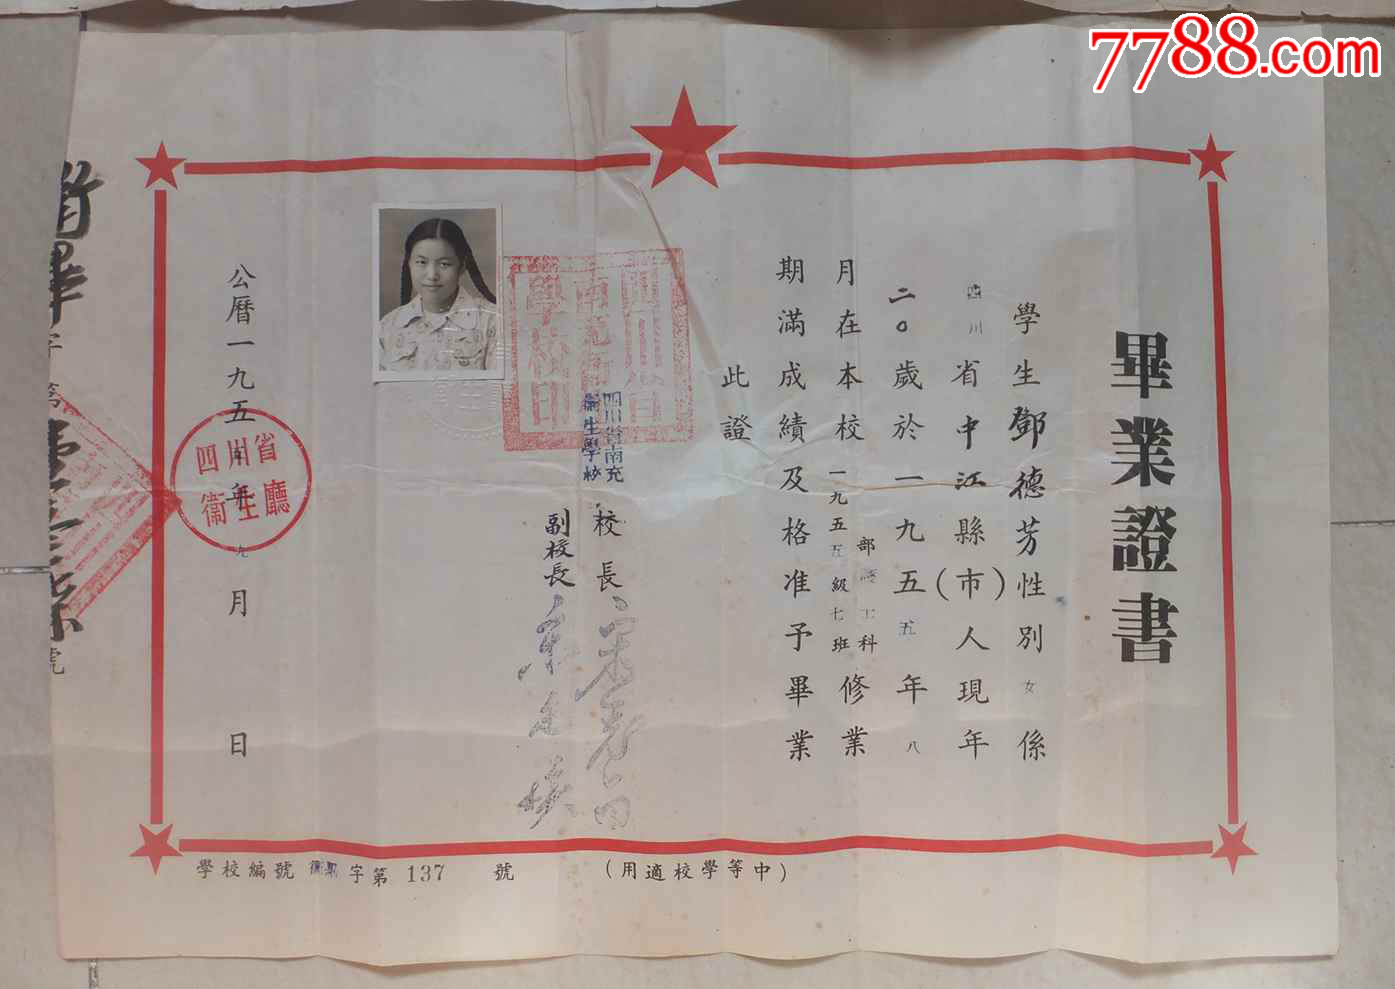 7788.com
畢業證書
學生鄧德芳性別女係
四川省中江縣(市)人現年
二〇歲於一九五五年八
月在本校一九五五級七班部護士科修業
期滿成績及格准予畢業
此證
四川省南充
衞生學校
校長
副校長
四川省
南充衞生
學校印
公曆一九五 年九月 日
四川省
衞生廳
學校編號 字第137號
(中等學校適用)